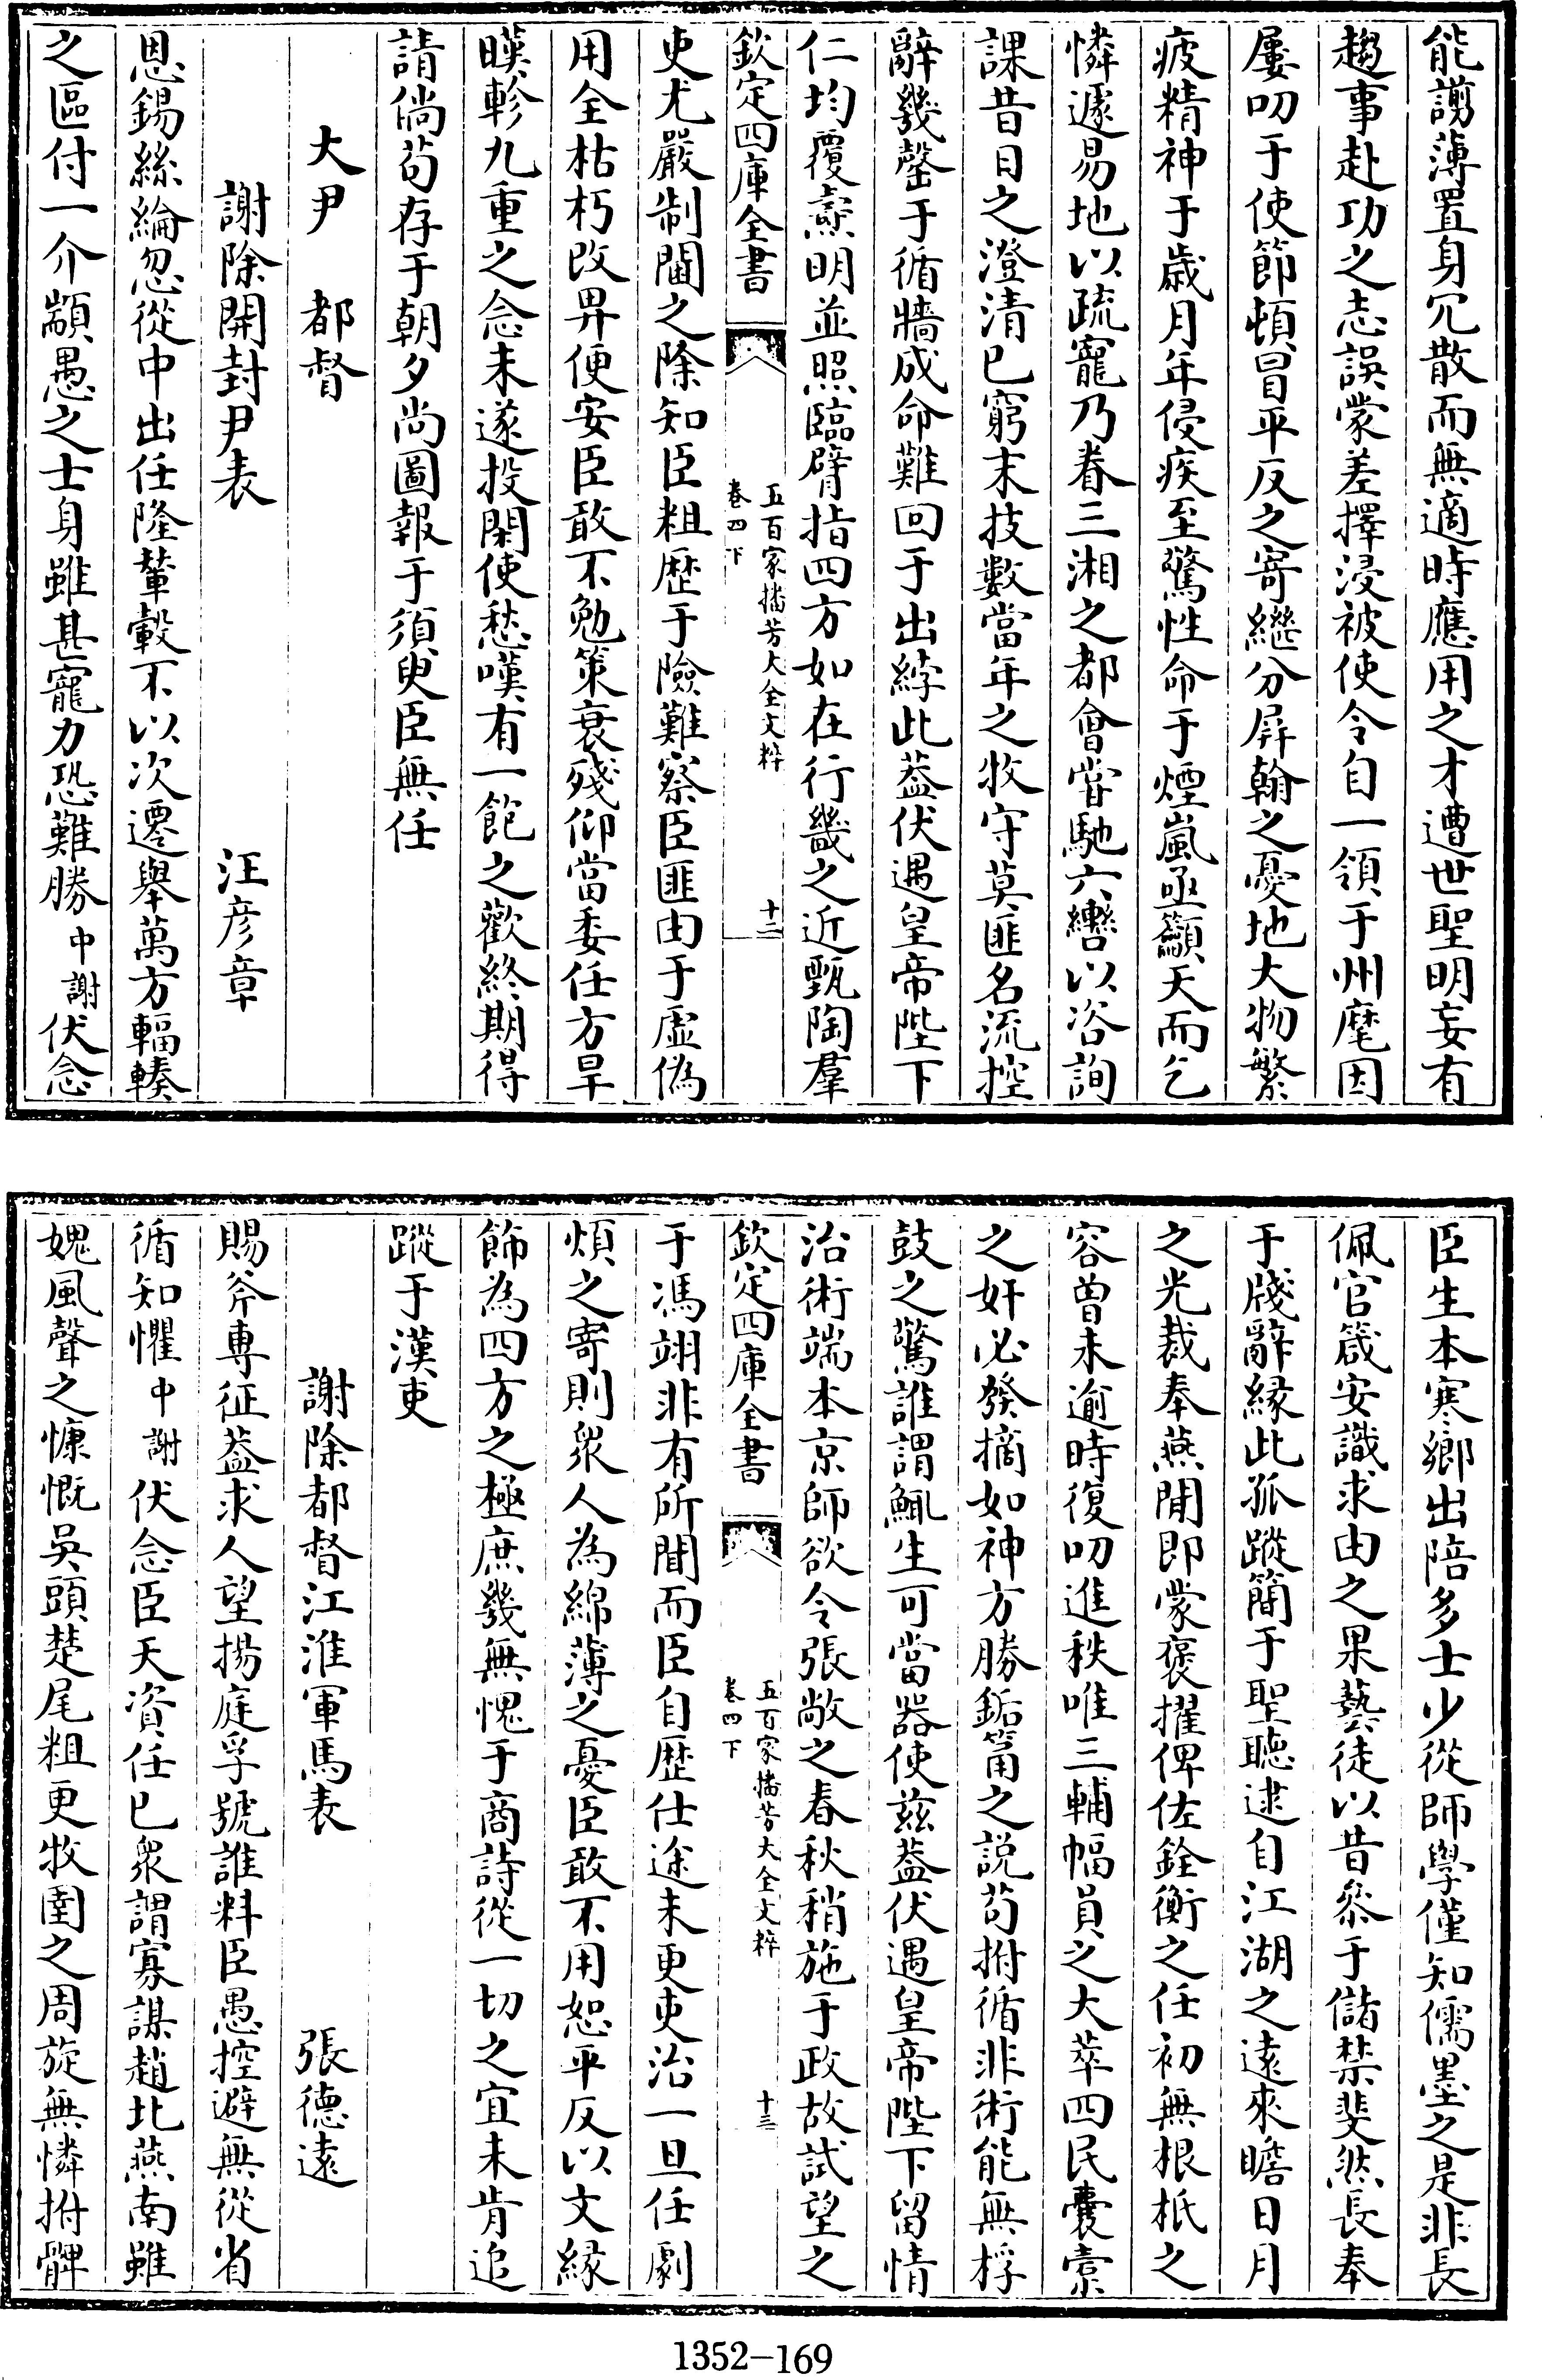 能謭薄置身冗散而無適時應用之才遭世聖明妄有
趨事赴功之志誤蒙差擇浸被使令自一領于州麾因
屢叨于使節頓冒平反之寄繼分屏翰之憂地大物繁
疲精神于歳月年侵疾至驚性命于煙嵐亟籲天而乞
憐遽易地以疏寵乃眷三湘之都會嘗馳六轡以咨詢
課昔日之澄清已窮末技數當年之牧守莫匪名流控
辭幾罄于循牆成命難回于出綍此葢伏遇皇帝陛下
仁均覆燾明並照臨臂指四方如在行畿之近甄陶羣
欽定四庫全書
五百家播芳大全文粹
卷四下
十二
吏尤嚴制閫之除知臣粗歴于險難察臣匪由于虚偽
用全枯朽改畀便安臣敢不勉策衰殘仰當委任方旱
暵軫九重之念未遂投閑使愁嘆有一飽之歡終期得
請倘茍存于朝夕尚圖報于須臾臣無任
大尹　都督
謝除開封尹表　汪彦章
恩錫絲綸忽從中出任隆輦轂不以次遷舉萬方輻輳
之區付一介顓愚之士身雖甚寵力恐難勝中謝伏念
臣生本寒鄉出陪多士少從師學僅知儒墨之是非長
佩官箴安識求由之果藝徒以昔叅于儲禁斐然長奉
于牋辭縁此孤蹤簡于聖聴逮自江湖之逺來瞻日月
之光裁奉燕閒即蒙褒擢俾佐銓衡之任初無根柢之
容曽未逾時復叨進秩唯三輔幅員之大萃四民囊橐
之奸必發摘如神方勝鉅筩之説茍拊循非術能無桴
鼓之驚誰謂鯫生可當器使兹葢伏遇皇帝陛下留情
治術端本京師欲令張敞之春秋稍施于政故試望之
欽定四庫全書
五百家播芳大全文粹
卷四下
十三
于馮翊非有所聞而臣自歴仕途未更吏治一旦任劇
煩之寄則衆人為綿薄之憂臣敢不用恕平反以文緣
飾為四方之極庶幾無愧于商詩從一切之宜未肯追
蹤于漢吏
謝除都督江淮軍馬表　張德逺
賜斧專征葢求人望揚庭孚號誰料臣愚控避無從省
循知懼中謝伏念臣天資任已衆謂寡謀趙北燕南雖
媿風聲之慷慨吳頭楚尾粗更牧圉之周旋無憐拊髀
1352-169